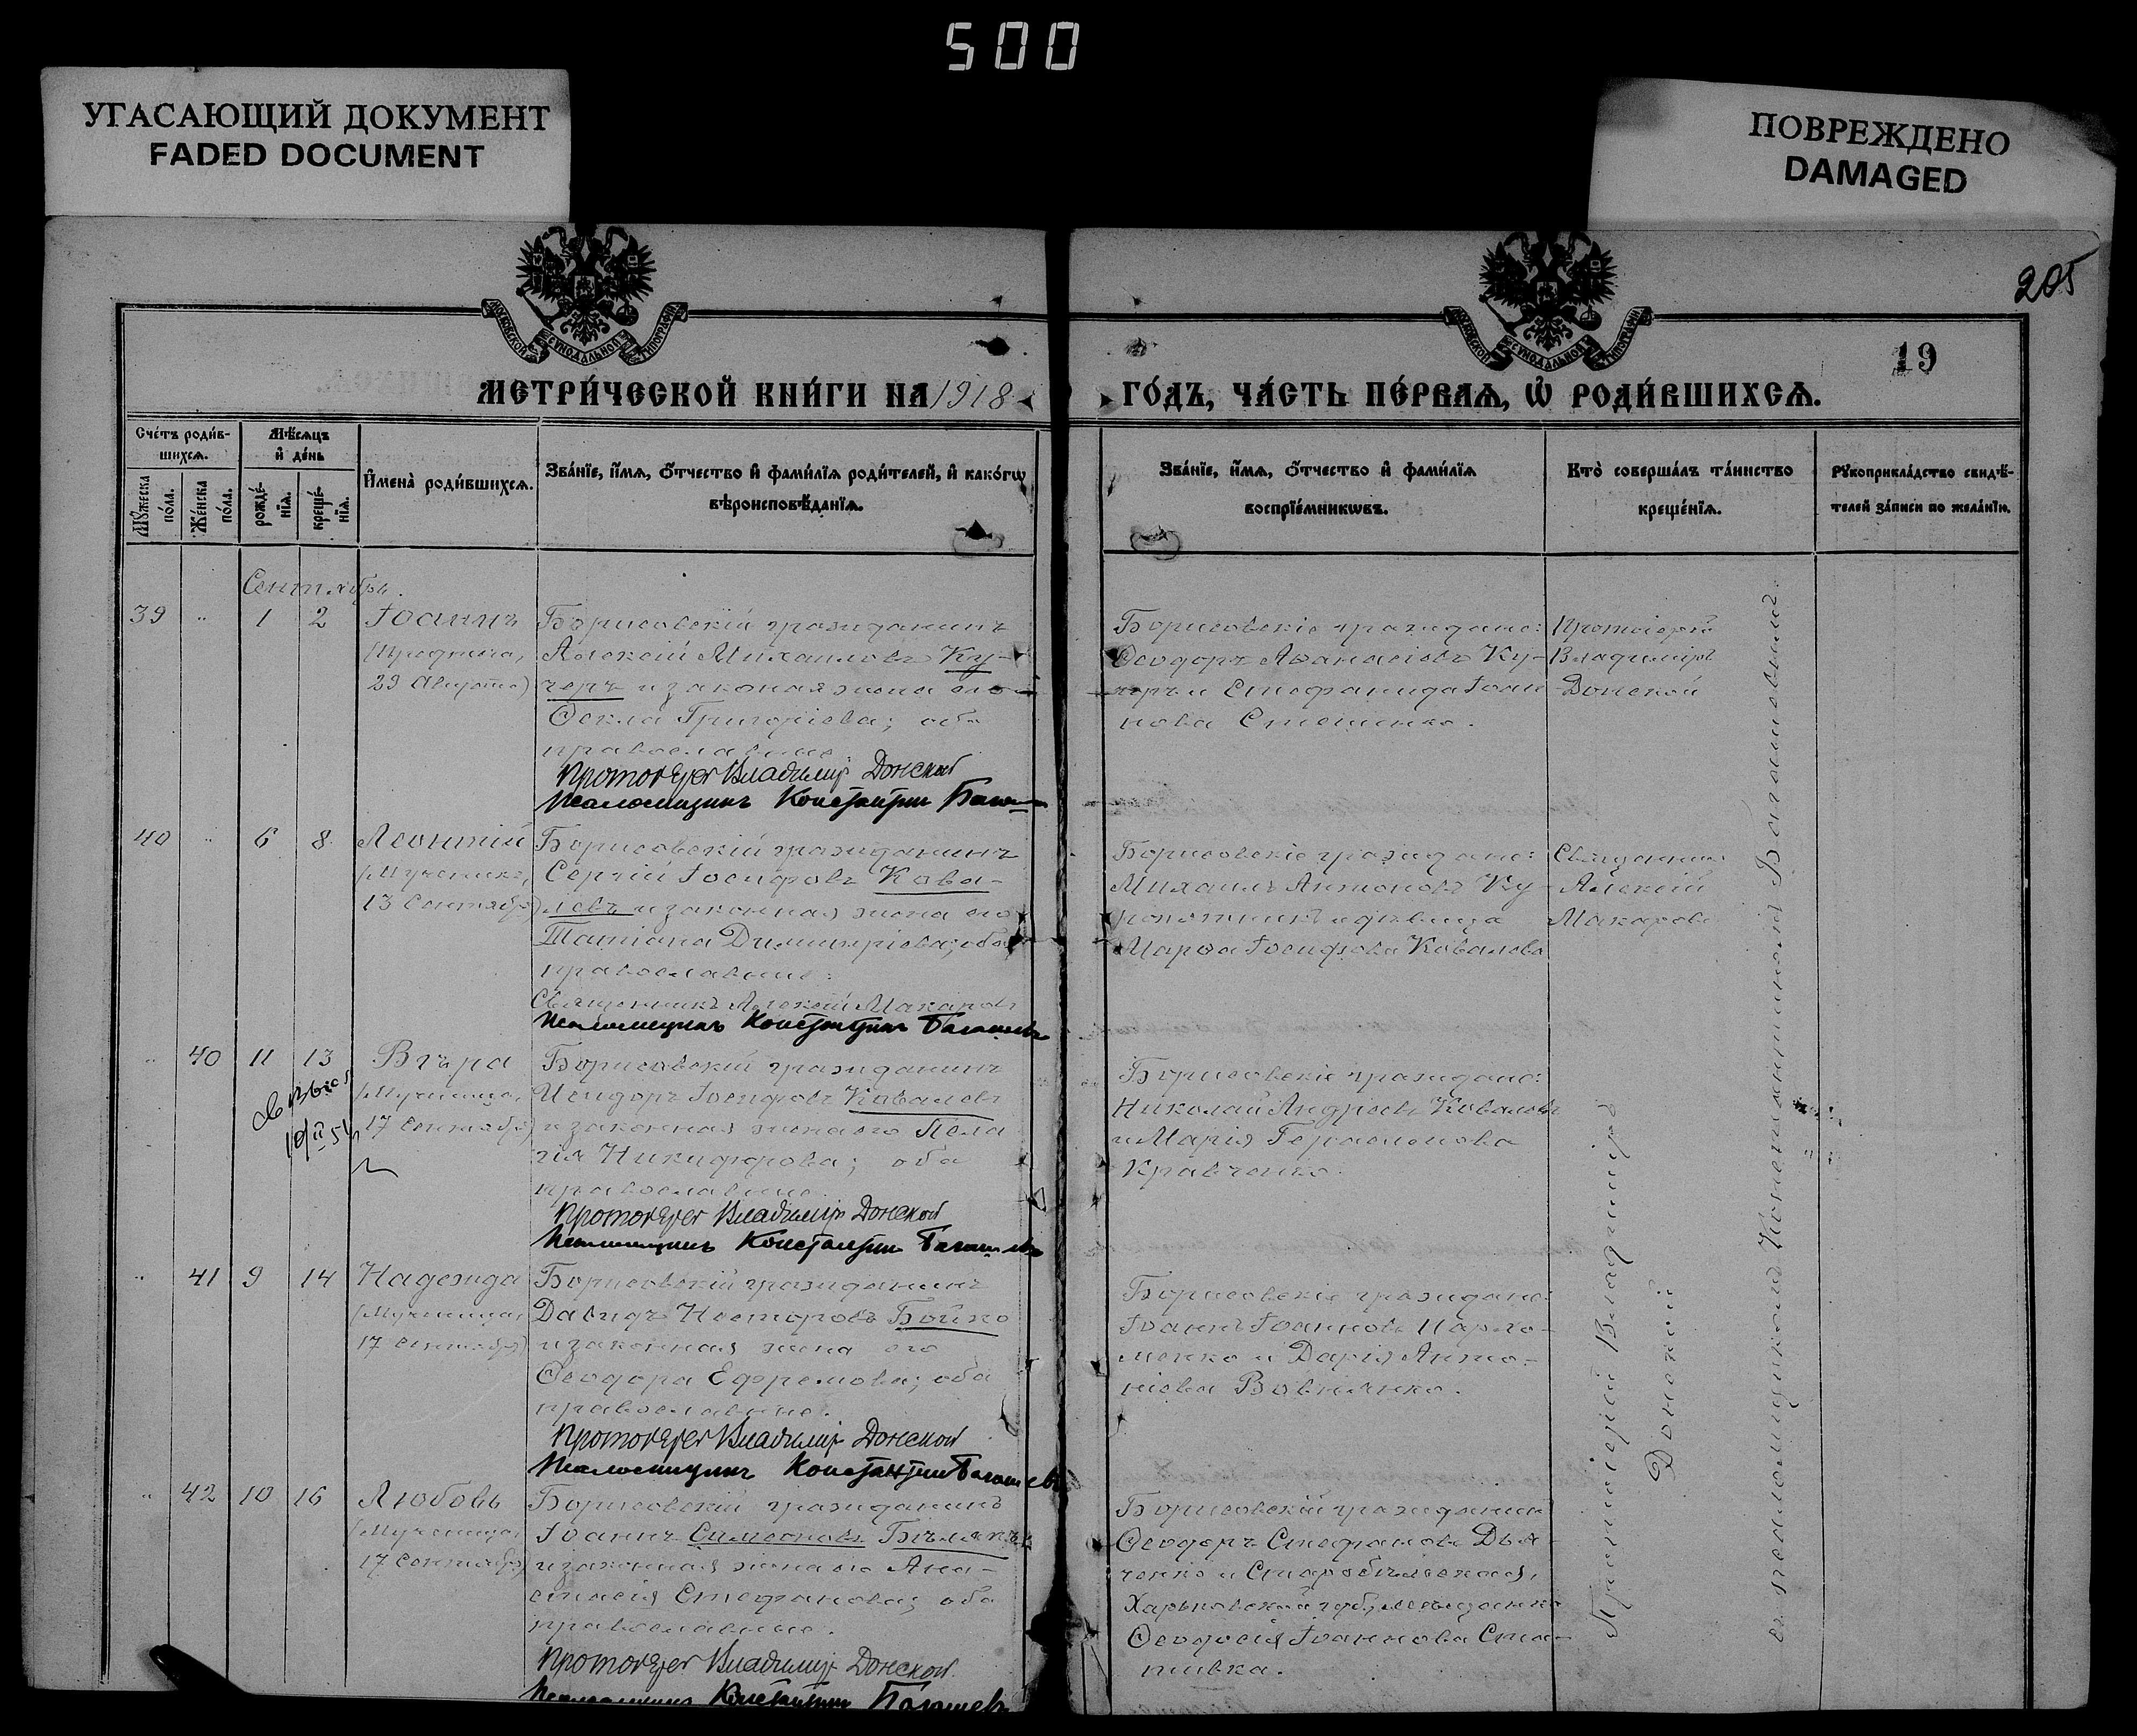 500
УГАСАЮЩИЙ ДОКУМЕНТ
FADED DOCUMENT
ПОВРЕЖДЕНО
DAMAGED
205
МОСКОВСКОЙ СѴНОДАЛЬНОЙ ТИПОГРАФІИ
МОСКОВСКОЙ СѴНОДАЛЬНОЙ ТИПОГРАФІИ
19
МЕТРИ́ЧЕСКОЙ КНИ́ГИ НА 1918
ГО́ДЪ, ЧА́СТЬ ПЕ́РВАѦ, Ѡ҆ РОДИ́ВШИХСѦ.
Сче́тъ роди́в-
шихсѧ.
Мѣ́сѧцъ
и҆ де́нь
Мꙋ́жеска
по́ла.
Же́нска
по́ла.
рожде́-
нїѧ.
креще́-
нїѧ.
И҆мена̀ роди́вшихсѧ.
Зва́нїе, и҆́мѧ, ѻ҆́тчество и҆ фами́лїѧ роди́телей, и҆ како́гѡ
вѣроисповѣ́данїѧ.
Зва́нїе, и҆́мѧ, ѻ҆́тчество и҆ фами́лїѧ
воспрїе́мникѡвъ.
Кто̀ соверша́лъ та́инство
креще́нїѧ.
Рꙋкоприкла́дство свидѣ́-
телей за́писи по жела́нїю.
Сентябрь.
39 " 1 2 Іоаннъ
29 Августа)
Борисовскій гражданинъ
Алексій Михаиловъ Ку-
черъ и законная жена его
Ѳекла Григоріева; оба
православные.
Протоіерей Владиміръ Донской
Псаломщикъ Константинъ
Борисовскіе граждане:
Ѳеодоръ Аѳанасіевъ Ку-
черъ и Стефанида Іоан
нова Стешенко.
Протоіерей
Владиміръ
Донской
40 " 6 8 Леонтій
(Мученика,
13 Сентября)
Борисовскій гражданинъ
Сергій Іосифовъ Кова-
левъ и законная жена его
Татіана Димитріева; оба
православные.
Священникъ Алексій Макаровъ
Псаломщикъ Константинъ
Борисовскіе граждане:
Михаилъ Антоновъ Ку-
и дѣвица
Марѳа Іосифова Ковалева
Священникъ
Алексій
Макаровъ
" 40 11 13 Вѣра
(Мученица,
17 Сентября)
Борисовскій гражданинъ
Исидоръ Іосифовъ Ковалевъ
и законная жена его Пела
гія Никифорова; оба
православные.
Протоіерей Владиміръ Донской
Псаломщикъ Константинъ
Борисовскіе граждане:
Николай Андреевъ Ковалевъ
и Марія Герасимова
Кравченко.
" 41 9 14 Надежда
(Мученица,
17 Сентября)
Борисовскій гражданинъ
Давидъ Несторовъ Бойко
и законная жена его
Ѳеодора Ефремова; оба
православные.
Протоіерей Владиміръ Донской
Псаломщикъ Константинъ
Борисовскіе граждане:
Іоаннъ Іоанновъ Пархо-
менко и Дарія Анто-
ніева Вовнянко.
" 42 10 16 Любовь
(Мученица,
17 Сентября)
Борисовскій гражданинъ
Іоаннъ Симеоновъ
и законная жена его Ана-
стасія Стефанова; оба
православные.
Протоіерей Владиміръ Донской.
Псаломщикъ Константинъ
Борисовскій гражданинъ
Ѳеодоръ Стефановъ Дья-
ченко и Старобѣльская,
Харьковской губ., мѣщанка
Ѳеодосія Іоаннова
Протоіерей Владиміръ
Донской
съ псаломщикомъ Константиномъ